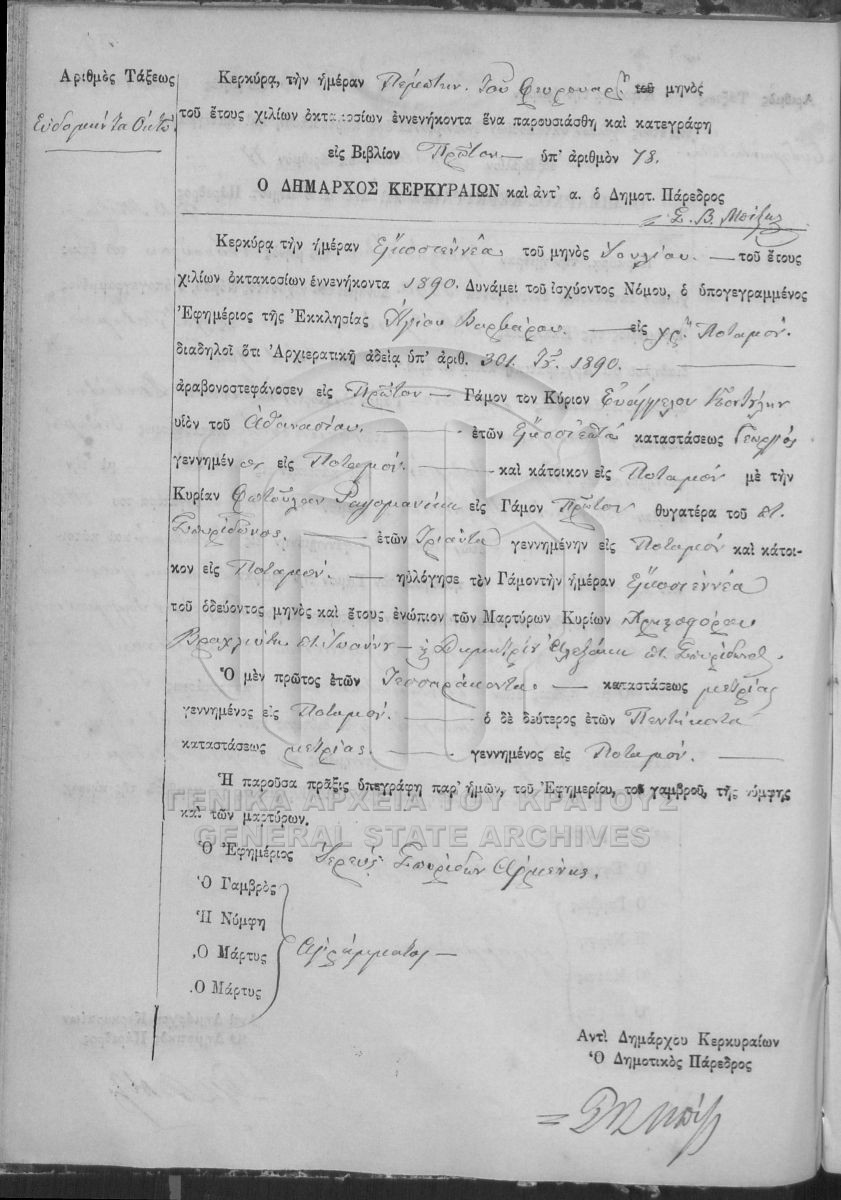 Ἀριθμὸς Τάξεως
Ἑβδομήντα Ὀκτώ
Κερκύρα, τὴν ἡμέραν Πέμπτην τοῦ Φεβρουαρ. τοῦ μηνὸς
τοῦ ἔτους χιλίων ὀκτακοσίων ἐννενήκοντα ἕνα παρουσιάσθη καὶ κατεγράφη
εἰς Βιβλίον Πρῶτον — ὑπ' ἀριθμὸν 78.
Ο ΔΗΜΑΡΧΟΣ ΚΕΡΚΥΡΑΙΩΝ καὶ ἀντ' α. ὁ Δημοτ. Πάρεδρος
Κερκύρα τὴν ἡμέραν Εἰκοσιεννέα τοῦ μηνὸς Ἰουλίου. — τοῦ ἔτους
χιλίων ὀκτακοσίων ἐννενήκοντα 1890. Δυνάμει τοῦ ἰσχύοντος Νόμου, ὁ ὑπογεγραμμένος
Ἐφημέριος τῆς Ἐκκλησίας Ἁγίου Βαρβάρου. — εἰς χρ. Ποταμόν.
διαδηλοῖ ὅτι Ἀρχιερατικῇ ἀδείᾳ ὑπ' ἀριθ. 301. 1890.
ἀραβονοστεφάνοσεν εἰς Πρῶτον — Γάμον τον Κύριον Εὐάγγελον
υἱὸν τοῦ Ἀθανασίου. — ἐτῶν Εἰκοσιεπτά καταστάσεως Γεωργός
γεννημένον εἰς Ποταμόν. — καὶ κάτοικον εἰς Ποταμόν μὲ τὴν
Κυρίαν Φωτοῦλαν εἰς Γάμον Πρῶτον θυγατέρα τοῦ
Σπυρίδωνος. — ἐτῶν Τριάντα γεννημένην εἰς Ποταμόν καὶ κάτοι-
κον εἰς Ποταμόν. — ηὐλόγησε τὸν Γάμον τὴν ἡμέραν Εἰκοσιεννέα
τοῦ ὁδεύοντος μηνὸς καὶ ἔτους ἐνώπιον τῶν Μαρτύρων Κυρίων Χριστοφόρου
Βραχλιώτη Ἰωάννου — Δημητρίου Σπυρίδωνος.
Ὁ μὲν πρῶτος ἐτῶν Τεσσαράκοντα. — καταστάσεως μετρίας
γεννημένος εἰς Ποταμόν. — ὁ δὲ δεύτερος ἐτῶν Πεντήκοντα
καταστάσεως μετρίας. — γεννημένος εἰς Ποταμόν. —
Ἡ παροῦσα πρᾶξις ὑπεγράφη παρ' ἡμῶν, τοῦ Ἐφημερίου, τοῦ γαμβροῦ, τῆς νύμφης
καὶ τῶν μαρτύρων.
ΓΕΝΙΚΑ ΑΡΧΕΙΑ ΤΟΥ ΚΡΑΤΟΥΣ
GENERAL STATE ARCHIVES
Ὁ Ἐφημέριος Ἱερεὺς Σπυρίδων Ἀρμένης.
Ὁ Γαμβρὸς
Ἡ Νύμφη
Ὁ Μάρτυς Ἀγράμματοι —
Ὁ Μάρτυς
Ἀντὶ Δημάρχου Κερκυραίων
Ὁ Δημοτικὸς Πάρεδρος